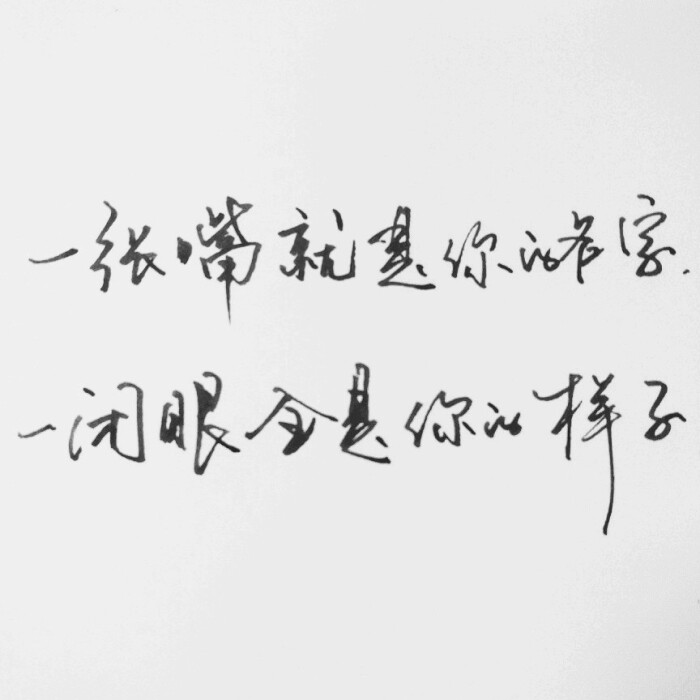 一张嘴就是你的名字.
一闭眼全是你的样子